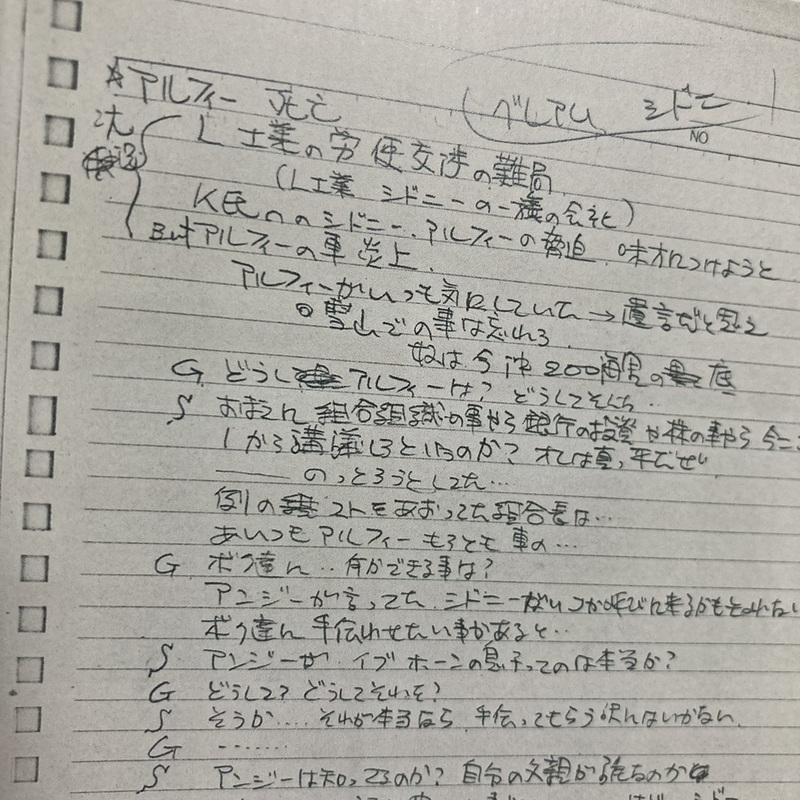 ☆アルフィー 死亡
(グレアム シドニー)
NO
状況
L工業の労使交渉の難局
(L工業 シドニーの一族の会社)
K氏へのシドニー、アルフィーの脅迫、味方につけようと
Butアルフィーの車 炎上、
アルフィーがいつも気にしていた→遺言だと思え
雪山での事は忘れろ、
奴は今 沖200海里の底
G どうして アルフィーは? どうしてそんな…
S おまえに 組合組織の事やら 銀行の投資や株の事やら 今ここ
1から講議しろというのか? オレは真っ平だぜ
のっとろうとしてた…
例の ストをあおってた組合員は…
あいつも アルフィーもろとも 車の…
G ボク達に‥何ができる事は?
アンジーが言ってた、シドニーがいつか呼びに来るかもしれない
ボク達に 手伝わせたい事があると‥
S アンジーが イブ ホーンの息子ってのは本当か?
G どうして? どうしてそれを?
S そうか…… それが本当なら、手伝ってもらう訳にはいかない、
G ……
S アンジーは知ってるのか? 自分の父親が